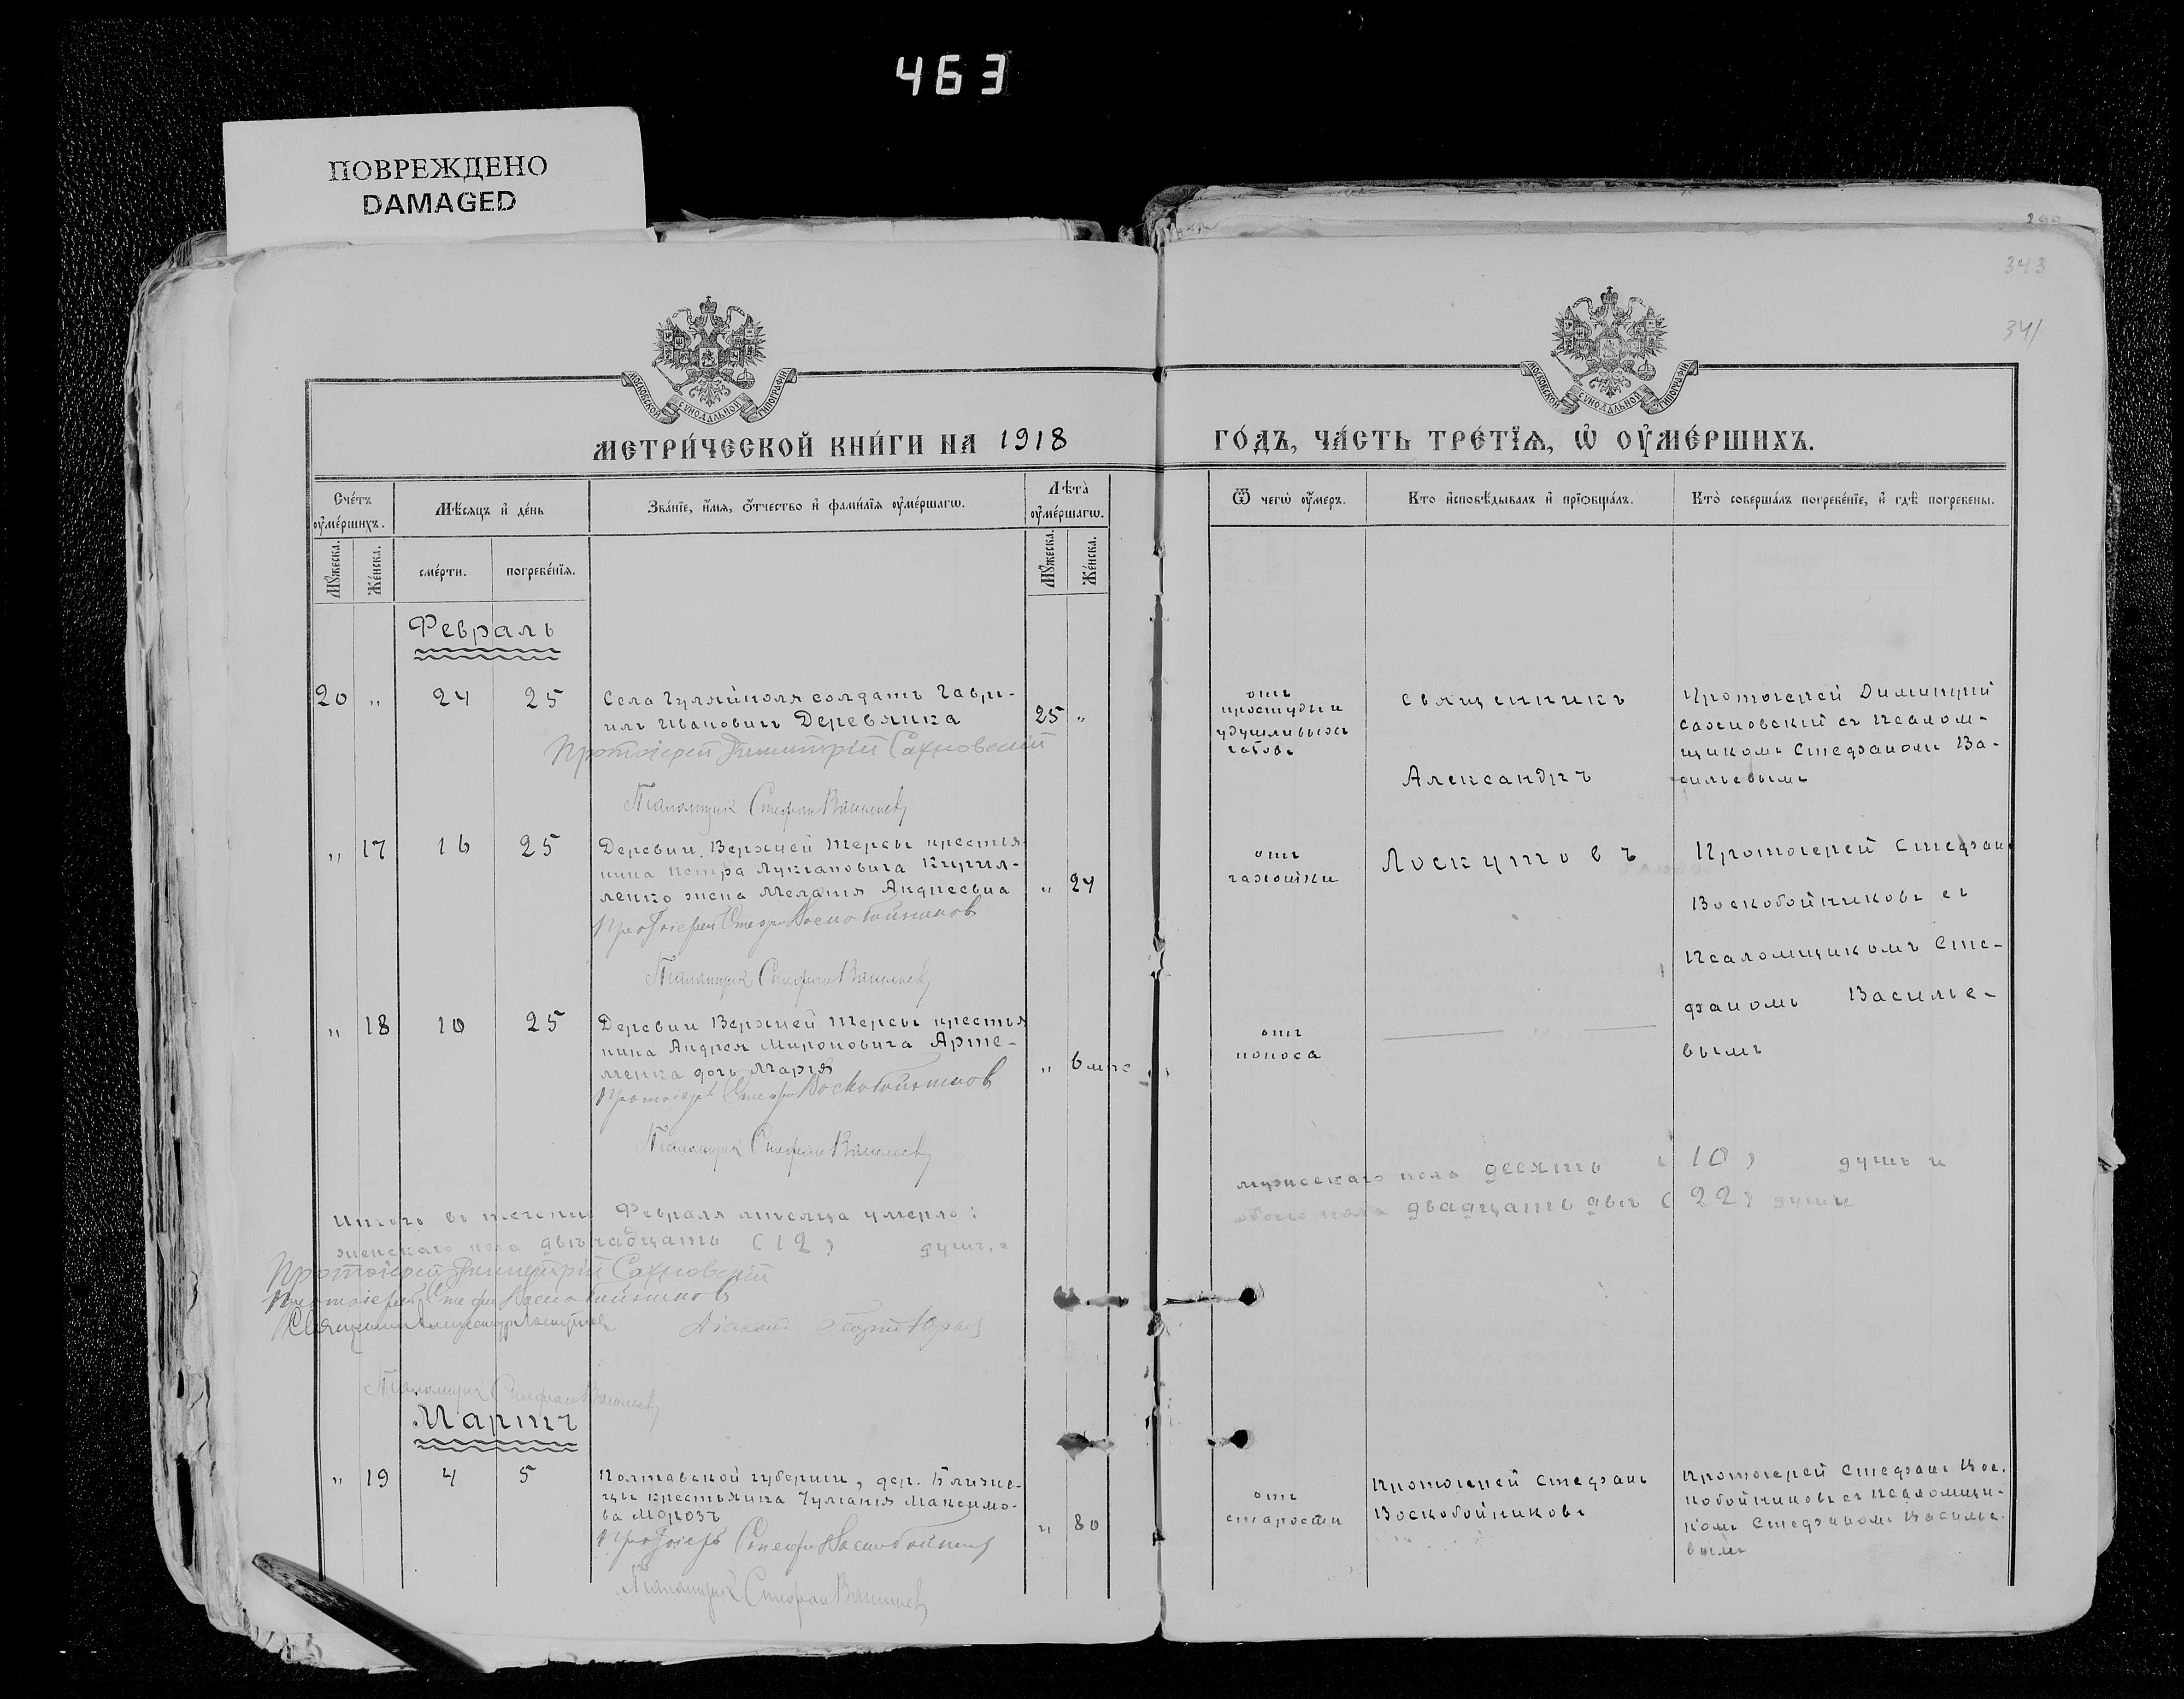 463
ПОВРЕЖДЕНО
DAMAGED
343
341
МОСКОВСКОЙ СѴНОДАЛЬНОЙ ТИПОГРАФІИ
МОСКОВСКОЙ СѴНОДАЛЬНОЙ ТИПОГРАФІИ
МЕТРИ́ЧЕСКОЙ КНИ́ГИ НА 1918
ГО́ДЪ, ЧА́СТЬ ТРЕ́ТЇѦ, Ѡ҆ ОУ҆МЕ́РШИХЪ.
Сче́тъ оу҆ме́ршихъ.
Мѣ́сяцъ и҆ де́нь
Зва́нїе, и҆́мя, ѻ҆́тчество и҆ фами́лїя оу҆ме́ршагѡ.
Лѣта̀ оу҆ме́ршагѡ.
Ѿ чегѡ̀ оу҆́меръ.
Кто̀ и҆сповѣ́дывалъ и҆ прїѡбща́лъ.
Кто̀ соверша́лъ погребе́нїе, и҆ гдѣ̀ погребены.
Мꙋ́жеска.
Же́нска.
сме́рти.
погребе́нїя.
Мꙋ́жеска.
Же́нска.
Февраль
20 " 24 25 Села Гуляйполя солдатъ Гаври-
илъ Ивановичъ Деревянка 25 "
Протоіерей Димитрій Сахновскій
Псаломщик Стефан Васильев
отъ
простуды и
священникъ
Александръ
Протоіерей Димитрій
Сахновскій съ псалом-
щикомъ Стефаномъ Ва-
сильевымъ
" 17 16 25 Деревни Верхней Терсы крестья
нина Петра Лукіановича Кирил-
ленко жена Меланія Андреевна " 24
Протоіерей Стефан Воскобойников
Псаломщик Стефан Васильев
отъ
чахотки
Лоскутовъ
Протоіерей Стефан
Воскобойниковъ съ
псаломщикомъ Сте-
фаномъ Василье-
вымъ
" 18 10 25 Деревни Верхней Терсы крестья
нина Андрея Мироновича Арте-
менка дочь Марія " 6 мѣс
Протоіерей Стефан Воскобойников
Псаломщик Стефан Васильев
отъ
поноса
"
Итого въ теченіи Февраля мѣсяца умерло:
мужескаго пола десять (10) душъ и
женскаго пола двѣнадцать (12) душъ, а
обоего пола двадцать двѣ (22) души
Протоіерей Димитрій Сахновскій
Протоіерей Стефан Воскобойников
Священник Александр Лоскутов
Діакон Георгій
Псаломщик Стефан Васильев
Мартъ
" 19 4 5 Полтавской губерніи, дер. Близне-
цы крестьянка Іуліанія Максимо-
ва Морозъ " 80
Протоіерей Стефан Воскобойников
Псаломщик Стефан Васильев
отъ
старости
Протоіерей Стефанъ
Воскобойниковъ
Протоіерей Стефанъ Вос-
кобойниковъ съ псаломщи-
комъ Стефаномъ Василье-
вымъ